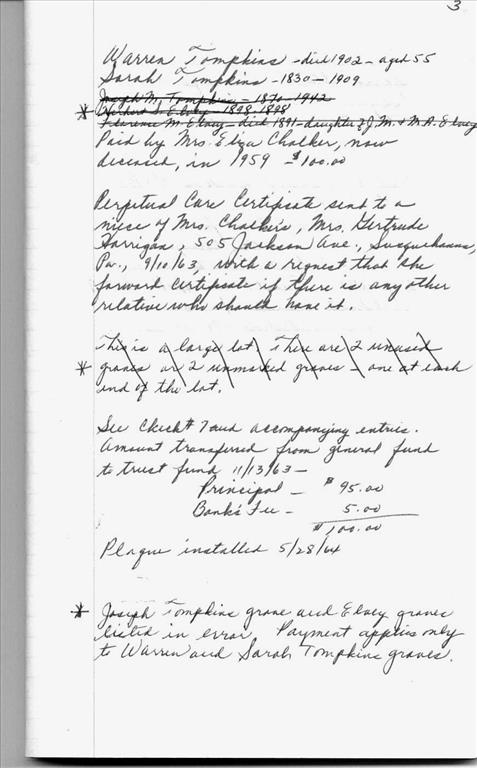 3
Warren Tompkins - died 1902 - aged 55
Sarah Tompkins - 1830 - 1909
Joseph M. Tompkins - 1870 - 1942
* Herbert S. Elvey 1898-1898
Florence M. Elvey - died 1891 - daughter of J. M. & M. A. Elvey
Paid by Mrs. Eliza Chalker, now
deceased, in 1959 - $100.00
Perpetual Care Certificate send to a
niece of Mrs. Chalker's, Mrs. Gertrude
Harrigan, 505 Jackson Ave., Susquehanna,
Pa., 9/10/63, with a request that she
forward certificate if there is any other
relative who should have it.
This is a large lot. There are 2 unused
* graves or 2 unmarked graves - one at each
end of the lot.
See Check # 7 and accompanying entries.
Amount transferred from general fund
to trust fund 11/13/63 -
Principal - $95.00
Bank's Fee - 5.00
$100.00
Plaque installed 5/28/64
* Joseph Tompkins grave and Elvey graves
listed in error. Payment applies only
to Warren and Sarah Tompkins graves.